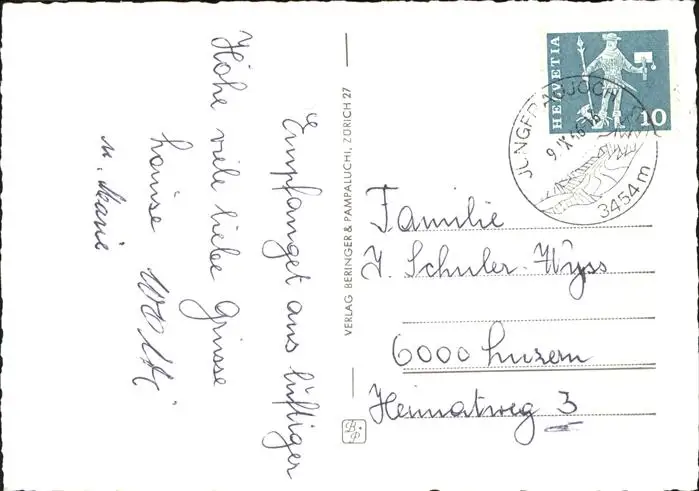 Empfanget aus luftiger
Höhe viele liebe Grüsse
Louise
u. Marie
VERLAG BERINGER & PAMPALUCHI, ZÜRICH 27
B.P
HELVETIA
10
JUNGFRAUJOCH
3454 m
Familie
J. Schuler-Wyss
6000 Luzern
Heimatweg 3